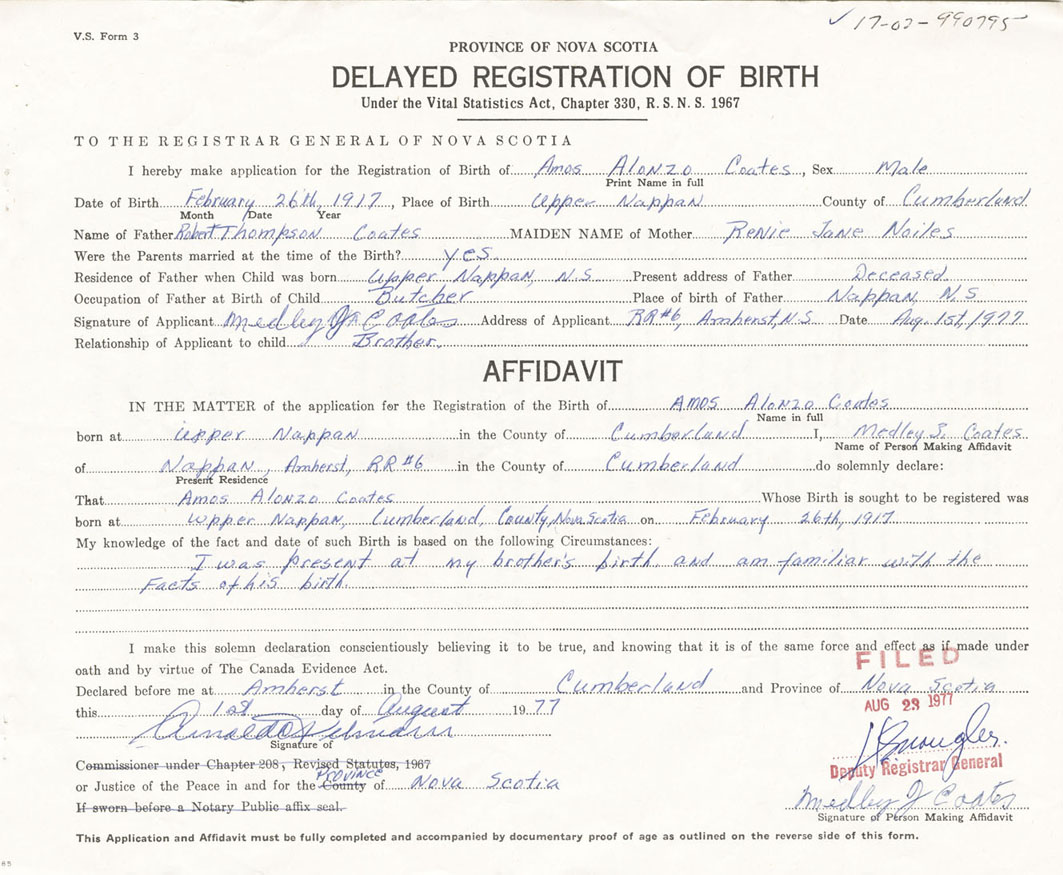 ✓ 17-02-990795
V.S. Form 3
PROVINCE OF NOVA SCOTIA
DELAYED REGISTRATION OF BIRTH
Under the Vital Statistics Act, Chapter 330, R.S.N.S. 1967
TO THE REGISTRAR GENERAL OF NOVA SCOTIA
I hereby make application for the Registration of Birth of Amos Alonzo Coates, Sex Male
Print Name in full
Date of Birth February 26th, 1917, Place of Birth Upper Nappan County of Cumberland
Month Date Year
Name of Father Robert Thompson Coates MAIDEN NAME of Mother Renie Jane Noiles
Were the Parents married at the time of the Birth? yes
Residence of Father when Child was born Upper Nappan, N.S Present address of Father Deceased
Occupation of Father at Birth of Child Butcher Place of birth of Father Nappan, N.S.
Signature of Applicant Medley J Coates Address of Applicant RR#6, Amherst, N.S Date Aug. 1st, 1977
Relationship of Applicant to child Brother.
AFFIDAVIT
IN THE MATTER of the application for the Registration of the Birth of Amos Alonzo Coates
Name in full
born at Upper Nappan in the County of Cumberland I, Medley J. Coates
Name of Person Making Affidavit
of Nappan, Amherst, RR#6 in the County of Cumberland do solemnly declare:
Present Residence
That Amos Alonzo Coates Whose Birth is sought to be registered was
born at Upper Nappan, Cumberland, County, Nova Scotia on February 26th, 1917
My knowledge of the fact and date of such Birth is based on the following Circumstances:
I was present at my brother's birth and am familiar with the
Facts of his birth.
I make this solemn declaration conscientiously believing it to be true, and knowing that it is of the same force and effect as if made under
oath and by virtue of The Canada Evidence Act.
FILED
Declared before me at Amherst in the County of Cumberland and Province of Nova Scotia
AUG 23 1977
this 1st day of August 1977
Signature of
Commissioner under Chapter 208, Revised Statutes, 1967
Deputy Registrar General
PROVINCE
or Justice of the Peace in and for the County of Nova Scotia
Medley J Coates
If sworn before a Notary Public affix seal.
Signature of Person Making Affidavit
This Application and Affidavit must be fully completed and accompanied by documentary proof of age as outlined on the reverse side of this form.